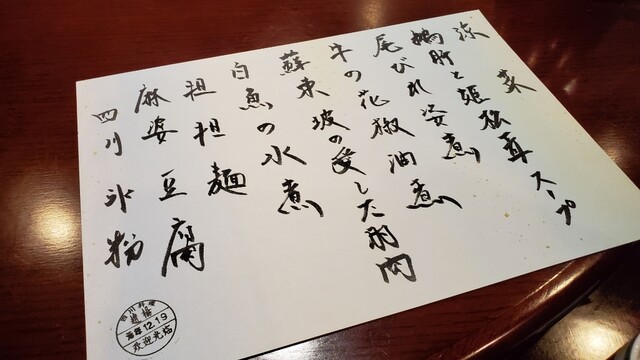 涼菜
肝と姫松茸スープ
尾びれ姿煮
牛の花椒油煮
蘇東坡の愛した肉
白魚の水煮
担担麺
麻婆豆腐
四川氷粉
四川料理
趙楊
12.19
欢迎光临